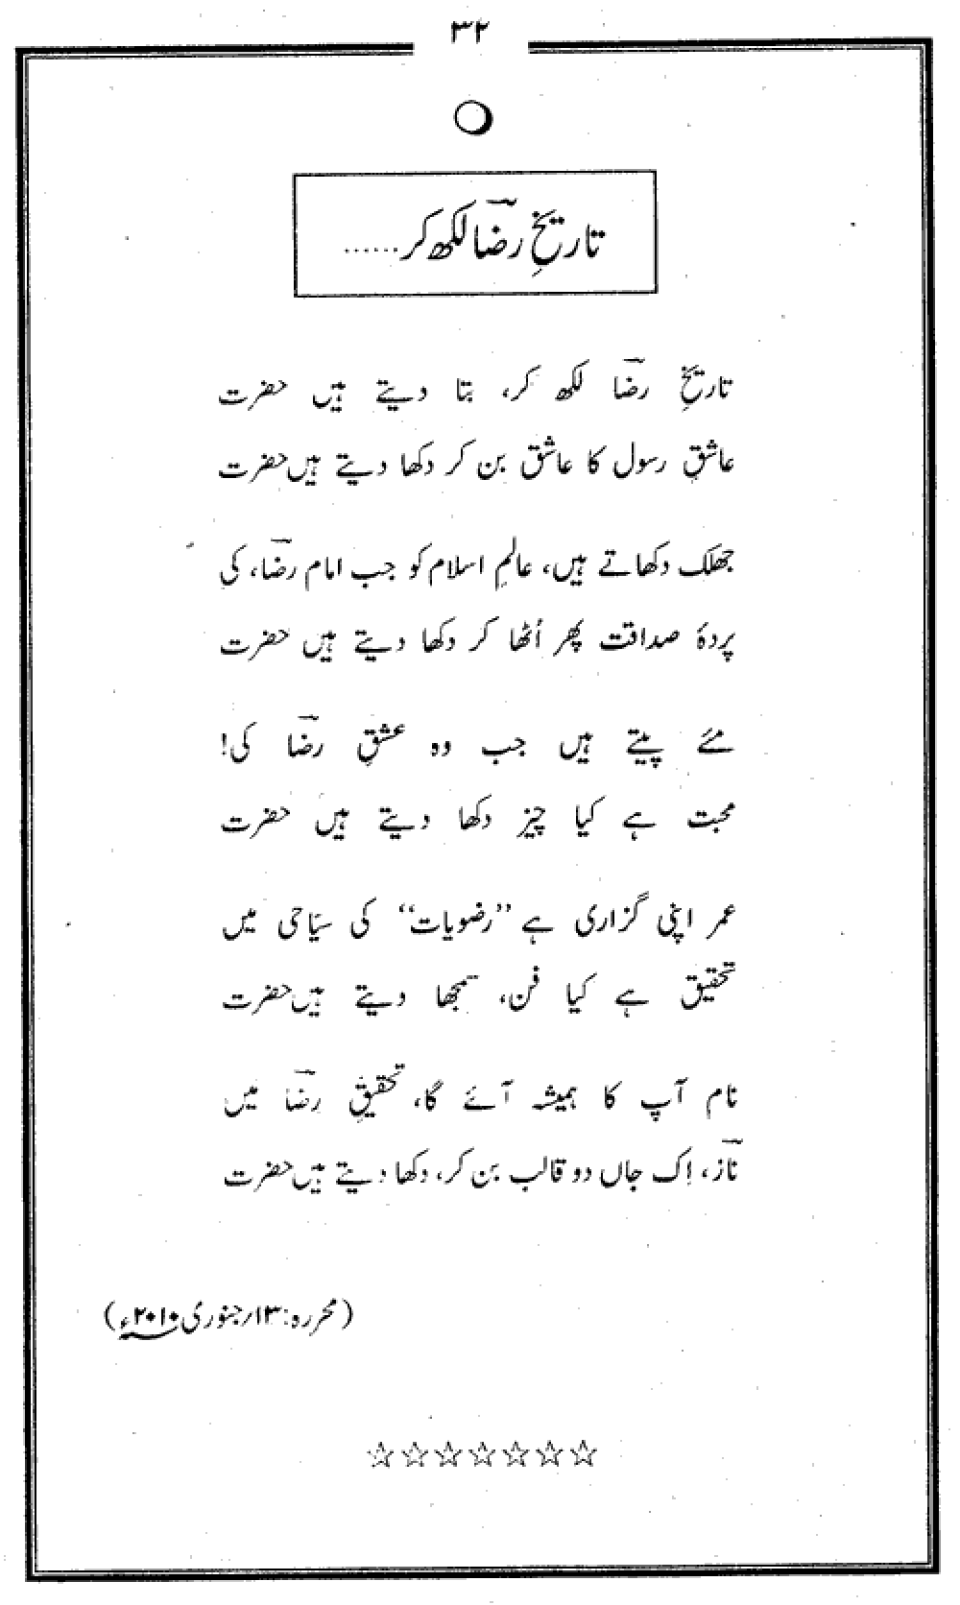 ۳۲
تاریخِ رضاؔ لکھ کر......
تاریخِ رضاؔ لکھ کر، بتا دیتے ہیں حضرت
عاشقِ رسول کا عاشق بن کر دکھا دیتے ہیں حضرت
جھلک دکھاتے ہیں، عالمِ اسلام کو جب امام رضاؔ، کی
پردۂ صداقت پھر اُٹھا کر دکھا دیتے ہیں حضرت
مئے پیتے ہیں جب وہ عشقِ رضاؔ کی!
محبت ہے کیا چیز دکھا دیتے ہیں حضرت
عمر اپنی گزاری ہے ”رضویات“ کی سیّاحی میں
تحقیق ہے کیا فن، سمجھا دیتے ہیں حضرت
نام آپ کا ہمیشہ آئے گا، تحقیقِ رضاؔ میں
نازؔ، اِک جاں دو قالب بن کر، دکھا دیتے ہیں حضرت
(محررہ: ۱۳؍جنوری ۲۰۱۰ء)
☆☆☆☆☆☆☆